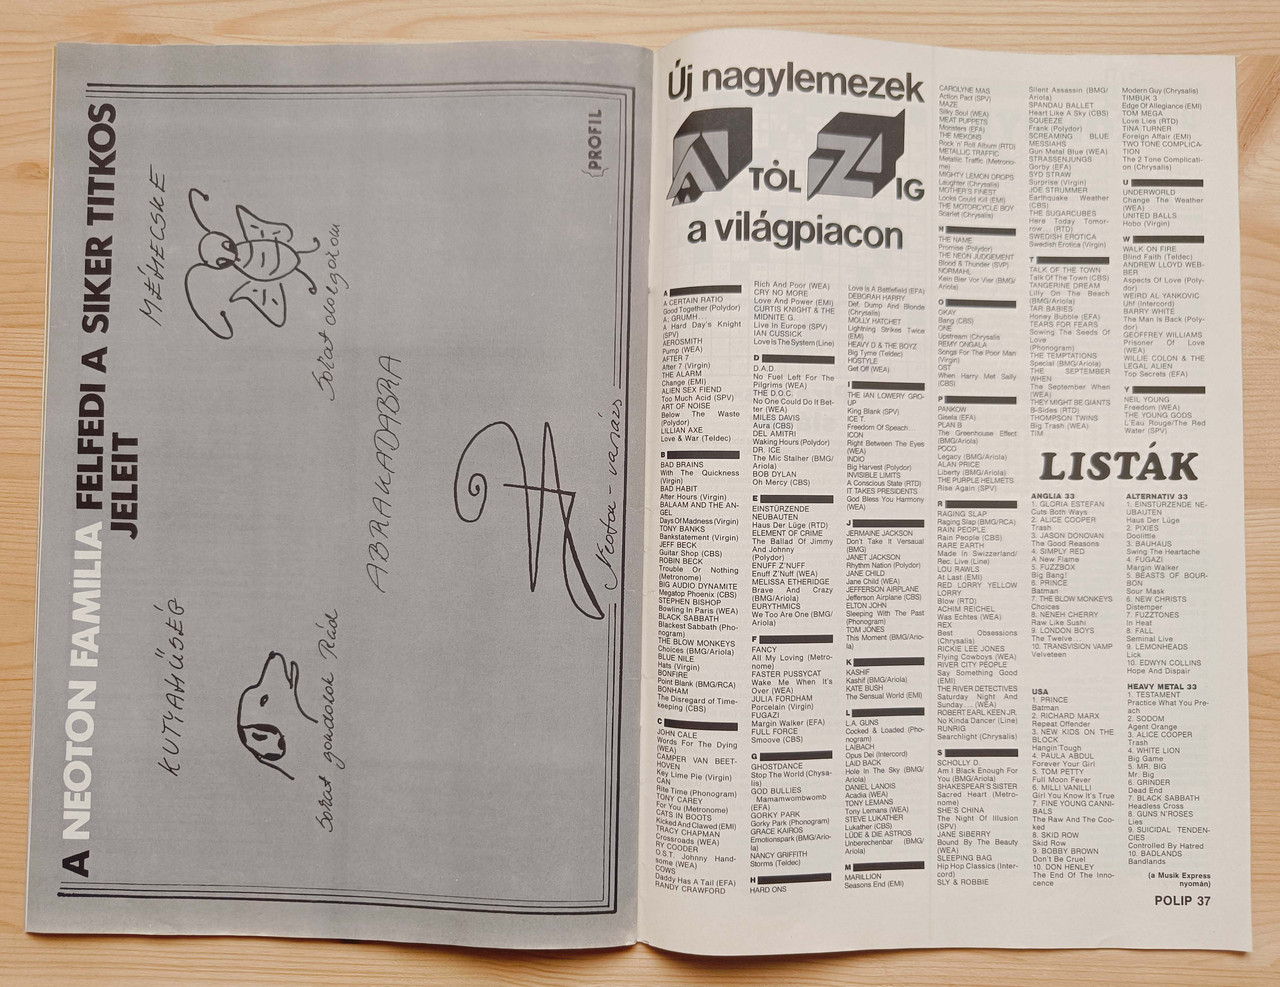 A NEOTON FAMILIA FELFEDI A SIKER TITKOS
JELEIT
KUTYAHŰSÉG
MÉHECSKE
ABRAKADABRA
PROFIL
Új nagylemezek
A TÓL Z IG
a világpiacon
A
A CERTAIN RATIO
Good Together (Polydor)
A; GRUMH...
A Hard Day's Knight
(SPV)
AEROSMITH
Pump (WEA)
AFTER 7
After 7 (Virgin)
THE ALARM
Change (EMI)
ALIEN SEX FIEND
Too Much Acid (SPV)
ART OF NOISE
Below The Waste
(Polydor)
LILLIAN AXE
Love & War (Teldec)
B
BAD BRAINS
With The Quickness
(Virgin)
BAD HABIT
After Hours (Virgin)
BALAAM AND THE AN-
GEL
Days Of Madness (Virgin)
TONY BANKS
Bankstatement (Virgin)
JEFF BECK
Guitar Shop (CBS)
ROBIN BECK
Trouble Or Nothing
(Metronome)
BIG AUDIO DYNAMITE
Megatop Phoenix (CBS)
STEPHEN BISHOP
Bowling In Paris (WEA)
BLACK SABBATH
Blackest Sabbath (Pho-
nogram)
THE BLOW MONKEYS
Choices (BMG/Ariola)
BLUE NILE
Hats (Virgin)
BONFIRE
Point Blank (BMG/RCA)
BONHAM
The Disregard of Time-
keeping (CBS)
C
JOHN CALE
Words For The Dying
(WEA)
CAMPER VAN BEET-
HOVEN
Key Lime Pie (Virgin)
CAN
Rite Time (Phonogram)
TONY CAREY
For You (Metronome)
CATS IN BOOTS
Kicked And Clawed (EMI)
TRACY CHAPMAN
Crossroads (WEA)
RY COODER
O.S.T. Johnny Hand-
some (WEA)
COWS
Daddy Has A Tail (EFA)
RANDY CRAWFORD
Rich And Poor (WEA)
CRY NO MORE
Love And Power (EMI)
CURTIS KNIGHT & THE
MIDNITE G.
Live In Europe (SPV)
IAN CUSSICK
Love Is The System (Line)
D
D.A.D.
No Fuel Left For The
Pilgrims (WEA)
THE D.O.C.
No One Could Do It Bet-
ter (WEA)
MILES DAVIS
Aura (CBS)
DEL AMITRI
Waking Hours (Polydor)
DR. ICE
The Mic Stalher (BMG/
Ariola)
BOB DYLAN
Oh Mercy (CBS)
E
EINSTÜRZENDE
NEUBAUTEN
Haus Der Lüge (RTD)
ELEMENT OF CRIME
The Ballad Of Jimmy
And Johnny
(Polydor)
ENUFF Z'NUFF
Enuff Z'Nuff (WEA)
MELISSA ETHERIDGE
Brave And Crazy
(BMG/Ariola)
EURYTHMICS
We Too Are One (BMG/
Ariola)
F
FANCY
All My Loving (Metro-
nome)
FASTER PUSSYCAT
Wake Me When It's
Over (WEA)
JULIA FORDHAM
Porcelain (Virgin)
FUGAZI
Margin Walker (EFA)
FULL FORCE
Smoove (CBS)
G
GHOSTDANCE
Stop The World (Chysa-
lis)
GOD BULLIES
Mamamwombwomb
(EFA)
GORKY PARK
Gorky Park (Phonogram)
GRACE KAIROS
Emotionspark (BMG/Ario-
la)
NANCY GRIFFITH
Storms (Teldec)
H
HARD ONS
Love Is A Battlefield (EFA)
DEBORAH HARRY
Def, Dump And Blonde
(Chrysalis)
MOLLY HATCHET
Lightning Strikes Twice
(EMI)
HEAVY D & THE BOYZ
Big Tyme (Teldec)
HOSTYLE
Get Off (WEA)
I
THE IAN LOWERY GRO-
UP
King Blank (SPV)
ICE T.
Freedom Of Speach...
ICON
Right Between The Eyes
(WEA)
INDIO
Big Harvest (Polydor)
INVISIBLE LIMITS
A Conscious State (RTD)
IT TAKES PRESIDENTS
God Bless You Harmony
(WEA)
J
JERMAINE JACKSON
Don't Take It Versaual
(BMG)
JANET JACKSON
Rhythm Nation (Polydor)
JANE CHILD
Jane Child (WEA)
JEFFERSON AIRPLANE
Jefferson Airplane (CBS)
ELTON JOHN
Sleeping With The Past
(Phonogram)
TOM JONES
This Moment (BMG/Ario-
la)
K
KASHIF
Kashif (BMG/Ariola)
KATE BUSH
The Sensual World (EMI)
L
L.A. GUNS
Cocked & Loaded (Pho-
nogram)
LAIBACH
Opus Dei (Intercord)
LAID BACK
Hole In The Sky (BMG/
Ariola)
DANIEL LANOIS
Acadia (WEA)
TONY LEMANS
Tony Lemans (WEA)
STEVE LUKATHER
Lukather (CBS)
LÜDE & DIE ASTROS
Unberechenbar (BMG/
Ariola)
M
MARILLION
Seasons End (EMI)
CAROLYNE MAS
Action Pact (SPV)
MAZE
Silky Soul (WEA)
MEAT PUPPETS
Monsters (EFA)
THE MEKONS
Rock 'n' Roll Album (RTD)
METALLIC TRAFFIC
Metallic Traffic (Metrono-
me)
MIGHTY LEMON DROPS
Laughter (Chrysalis)
MOTHER'S FINEST
Looks Could Kill (EMI)
THE MOTORCYCLE BOY
Scarlet (Chrysalis)
N
THE NAME
Promise (Polydor)
THE NEON JUDGEMENT
Blood & Thunder (SVP)
NORMAHL
Kein Bier Vor Vier (BMG/
Ariola)
O
OKAY
Bang (CBS)
ONE
Upstream (Chrysalis
REMY ONGALA
Songs For The Poor Man
(Virgin)
OST
When Harry Met Sally
(CBS)
P
PANKOW
Gisela (EFA)
PLAN B
The Greenhouse Effect
(BMG/Ariola)
POCO
Legacy (BMG/Ariola)
ALAN PRICE
Liberty (BMG/Ariola)
THE PURPLE HELMETS
Rise Again (SPV)
R
RAGING SLAP
Raging Slap (BMG/RCA)
RAIN PEOPLE
Rain People (CBS)
RARE EARTH
Made In Switzerland/
Rec. Live (Line)
LOU RAWLS
At Last (EMI)
RED LORRY YELLOW
LORRY
Blow (RTD)
ACHIM REICHEL
Was Echtes (WEA)
REX
Best Obsessions
(Chrysalis)
RICKIE LEE JONES
Flying Cowboys (WEA)
RIVER CITY PEOPLE
Say Something Good
(EMI)
THE RIVER DETECTIVES
Saturday Night And
Sunday... (WEA)
ROBERT EARL KEEN JR.
No Kinda Dancer (Line)
RUNRIG
Searchlight (Chrysalis)
S
SCHOLLY D.
Am I Black Enough For
You (BMG/Ariola)
SHAKESPEAR'S SISTER
Sacred Heart (Metro-
nome)
SHE'S CHINA
The Night Of Illusion
(SPV)
JANE SIBERRY
Bound By The Beauty
(WEA)
SLEEPING BAG
Hip Hop Classics (Inter-
cord)
SLY & ROBBIE
Silent Assassin (BMG/
Ariola)
SPANDAU BALLET
Heart Like A Sky (CBS)
SQUEEZE
Frank (Polydor)
SCREAMING BLUE
MESSIAHS
Gun Metal Blue (WEA)
STRASSENJUNGS
Gorby (EFA)
SYD STRAW
Surprise (Virgin)
JOE STRUMMER
Earthquake Weather
(CBS)
THE SUGARCUBES
Here Today Tomor-
row... (RTD)
SWEDISH EROTICA
Swedish Erotica (Virgin)
T
TALK OF THE TOWN
Talk Of The Town (CBS)
TANGERINE DREAM
Lilly On The Beach
(BMG/Ariola)
TAR BABIES
Honey Bubble (EFA)
TEARS FOR FEARS
Sowing The Seeds Of
Love
(Phonogram)
THE TEMPTATIONS
Special (BMG/Ariola)
THE SEPTEMBER
WHEN
The September When
(WEA)
THEY MIGHT BE GIANTS
B-Sides (RTD)
THOMPSON TWINS
Big Trash (WEA)
TIM
Modern Guy (Chrysalis)
TIMBUK 3
Edge Of Allegiance (EMI)
TOM MEGA
Love Lies (RTD)
TINA TURNER
Foreign Affair (EMI)
TWO TONE COMPLICA-
TION
The 2 Tone Complicati-
on (Chrysalis)
U
UNDERWORLD
Change The Weather
(WEA)
UNITED BALLS
Hobo (Virgin)
W
WALK ON FIRE
Blind Faith (Teldec)
ANDREW LLOYD WEB-
BER
Aspects Of Love (Poly-
dor)
WEIRD AL YANKOVIC
Uhf (Intercord)
BARRY WHITE
The Man Is Back (Poly-
dor)
GEOFFREY WILLIAMS
Prisoner Of Love
(WEA)
WILLIE COLON & THE
LEGAL ALIEN
Top Secrets (EFA)
Y
NEIL YOUNG
Freedom (WEA)
THE YOUNG GODS
L'Eau Rouge/The Red
Water (SPV)
LISTÁK
ANGLIA 33
1. GLORIA ESTEFAN
Cuts Both Ways
2. ALICE COOPER
Trash
3. JASON DONOVAN
The Good Reasons
4. SIMPLY RED
A New Flame
5. FUZZBOX
Big Bang!
6. PRINCE
Batman
7. THE BLOW MONKEYS
Choices
8. NENEH CHERRY
Raw Like Sushi
9. LONDON BOYS
The Twelve...
10. TRANSVISION VAMP
Velveteen
USA
1. PRINCE
Batman
2. RICHARD MARX
Repeat Offender
3. NEW KIDS ON THE
BLOCK
Hangin'Tough
4. PAULA ABDUL
Forever Your Girl
5. TOM PETTY
Full Moon Fever
6. MILLI VANILLI
Girl You Know It's True
7. FINE YOUNG CANNI-
BALS
The Raw And The Coo-
ked
8. SKID ROW
Skid Row
9. BOBBY BROWN
Don't Be Cruel
10. DON HENLEY
The End Of The Inno-
cence
ALTERNATIV 33
1. EINSTÜRZENDE NE-
UBAUTEN
Haus Der Lüge
2. PIXIES
Doolittle
3. BAUHAUS
Swing The Heartache
4. FUGAZI
Margin Walker
5. BEASTS OF BOUR-
BON
Sour Mask
6. NEW CHRISTS
Distemper
7. FUZZTONES
In Heat
8. FALL
Seminal Live
9. LEMONHEADS
Lick
10. EDWYN COLLINS
Hope And Dispair
HEAVY METAL 33
1. TESTAMENT
Practice What You Pre-
ach
2. SODOM
Agent Orange
3. ALICE COOPER
Trash
4. WHITE LION
Big Game
5. MR. BIG
Mr. Big
6. GRINDER
Dead End
7. BLACK SABBATH
Headless Cross
8. GUNS N'ROSES
Lies
9. SUICIDAL TENDEN-
CIES
Controlled By Hatred
10. BADLANDS
Bandlands
(a Musik Express
nyomán)
POLIP 37